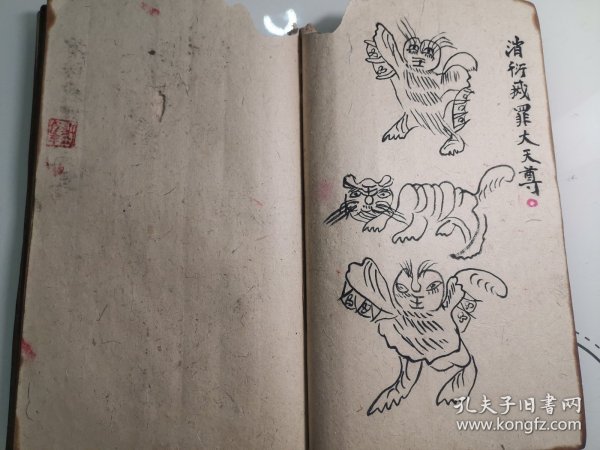 消衍滅罪大天尊
王
王
孔夫子旧书网
www.kongfz.com